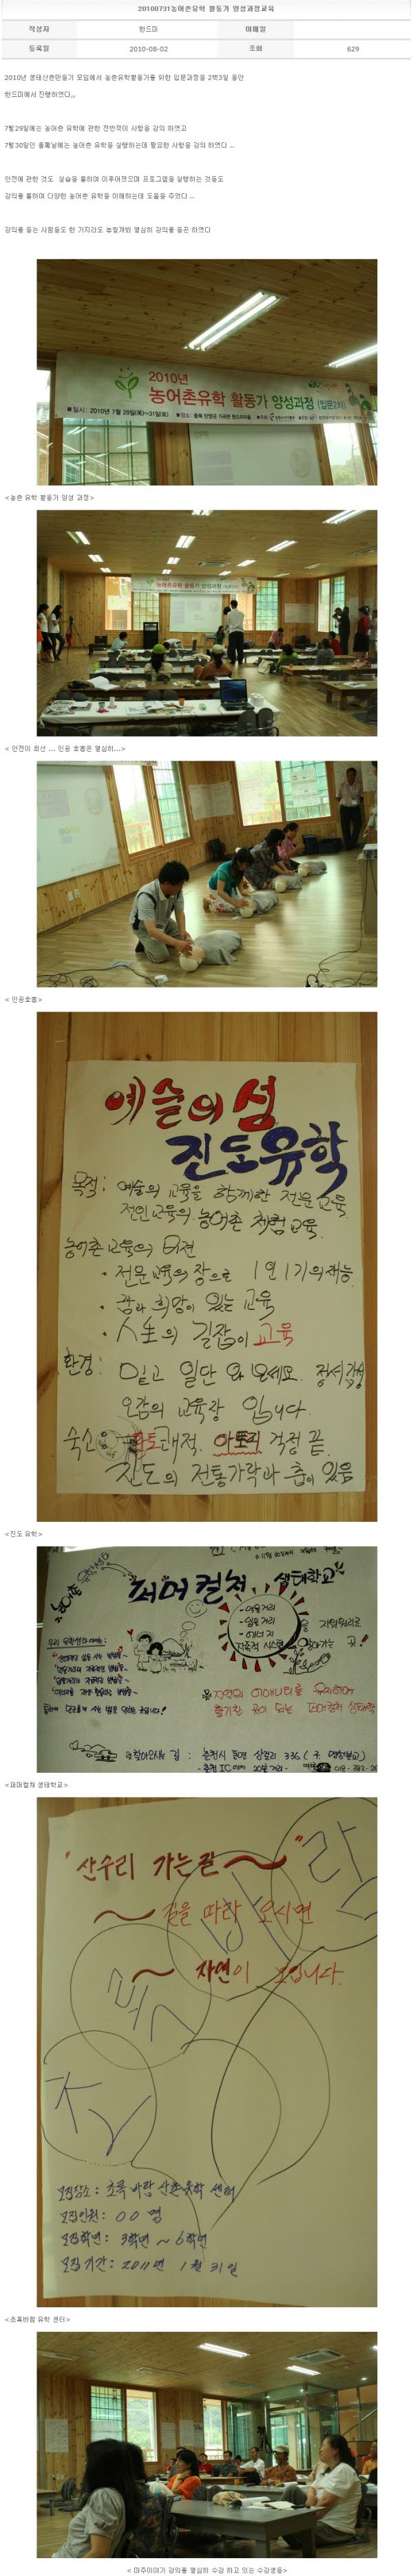 20100731농어촌유학 활동가 양성과정교육
작성자 한드미 이메일
등록일 2010-08-02 조회 629
2010년 생태산촌만들기 모임에서 농촌유학활동가를 위한 입문과정을 2박3일 동안
한드미에서 진행하였다,,
7월29일에는 농어촌 유학에 관한 전반적이 사항을 강의 하였고
7월30일인 둘째날에는 농어촌 유학을 실행하는데 필요한 사항을 강의 하였다 ..
안전에 관한 것도 실습을 통하여 이루어졌으며 프로그램을 실행하는 것등도
강의를 통하여 다양한 농어촌 유학을 이해하는데 도움을 주었다 ..
강의를 듣는 사람들도 한 가지라도 놓칠까봐 열심히 강의를 듣곤 하였다
2010년
농어촌유학 활동가 양성과정 (입문2차)
■일시: 2010년 7월 29일(목)~31일(토) ■장소: 충북 단양군 가곡면 한드미마을
<농촌 유학 활동가 양성 과정>
농어촌유학 활동가 양성과정
< 안전이 최선 ... 인공 호흡은 열심히...>
< 인공호흡>
예술의 섬
진도유학
목적: 예술의 교육을 함께한 전문교육
전인교육의 농어촌 체험교육.
농어촌 교육의 비젼
· 전문교육의 장으로 1인1기의 재능
· 꿈과 희망이 있는 교육
· 人生의 길잡이 교육
환경: 믿고 일단 와 보세요. 정서 감성
오감의 교육장 입니다.
숙소 아토피 걱정 끝.
진도의 전통가락과 춤이 있음
<진도 유학>
농어촌 유학센타
퍼머컬쳐 생태학교
- 먹을거리
- 입을거리
- 에너지
자족적 시스템
<퍼머컬쳐 생태학교>
"산수리 가는길~"
~ 길을 따라 오시면
~ 자연이 보입니다.
모집장소: 초록바람 산촌유학 센터
모집인원: 00명
모집학년: 3학년 ~ 6학년
모집기간: 2011년 1월 31일
<초록바람 유학 센터>
< 마주이야기 강의를 열심히 수강 하고 있는 수강생들>